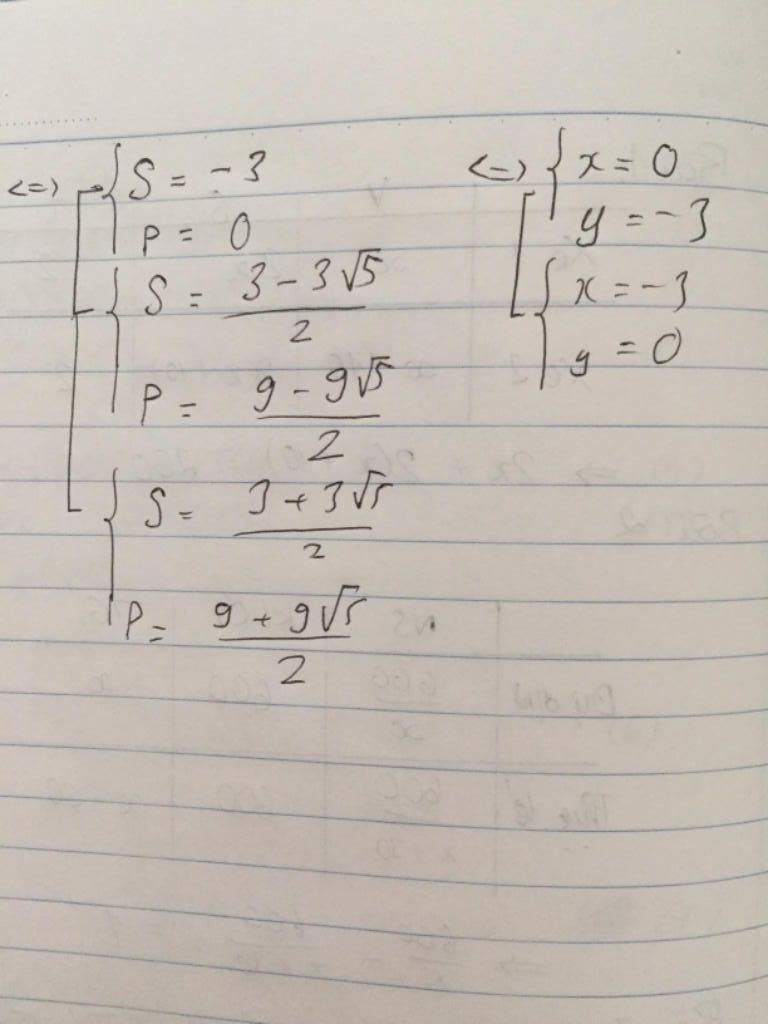 <=> { S = -3
P = 0
{ S = (3 - 3√5)/2
P = (9 - 9√5)/2
{ S = (3 + 3√5)/2
P = (9 + 9√5)/2
<=> { x = 0
y = -3
{ x = -3
y = 0